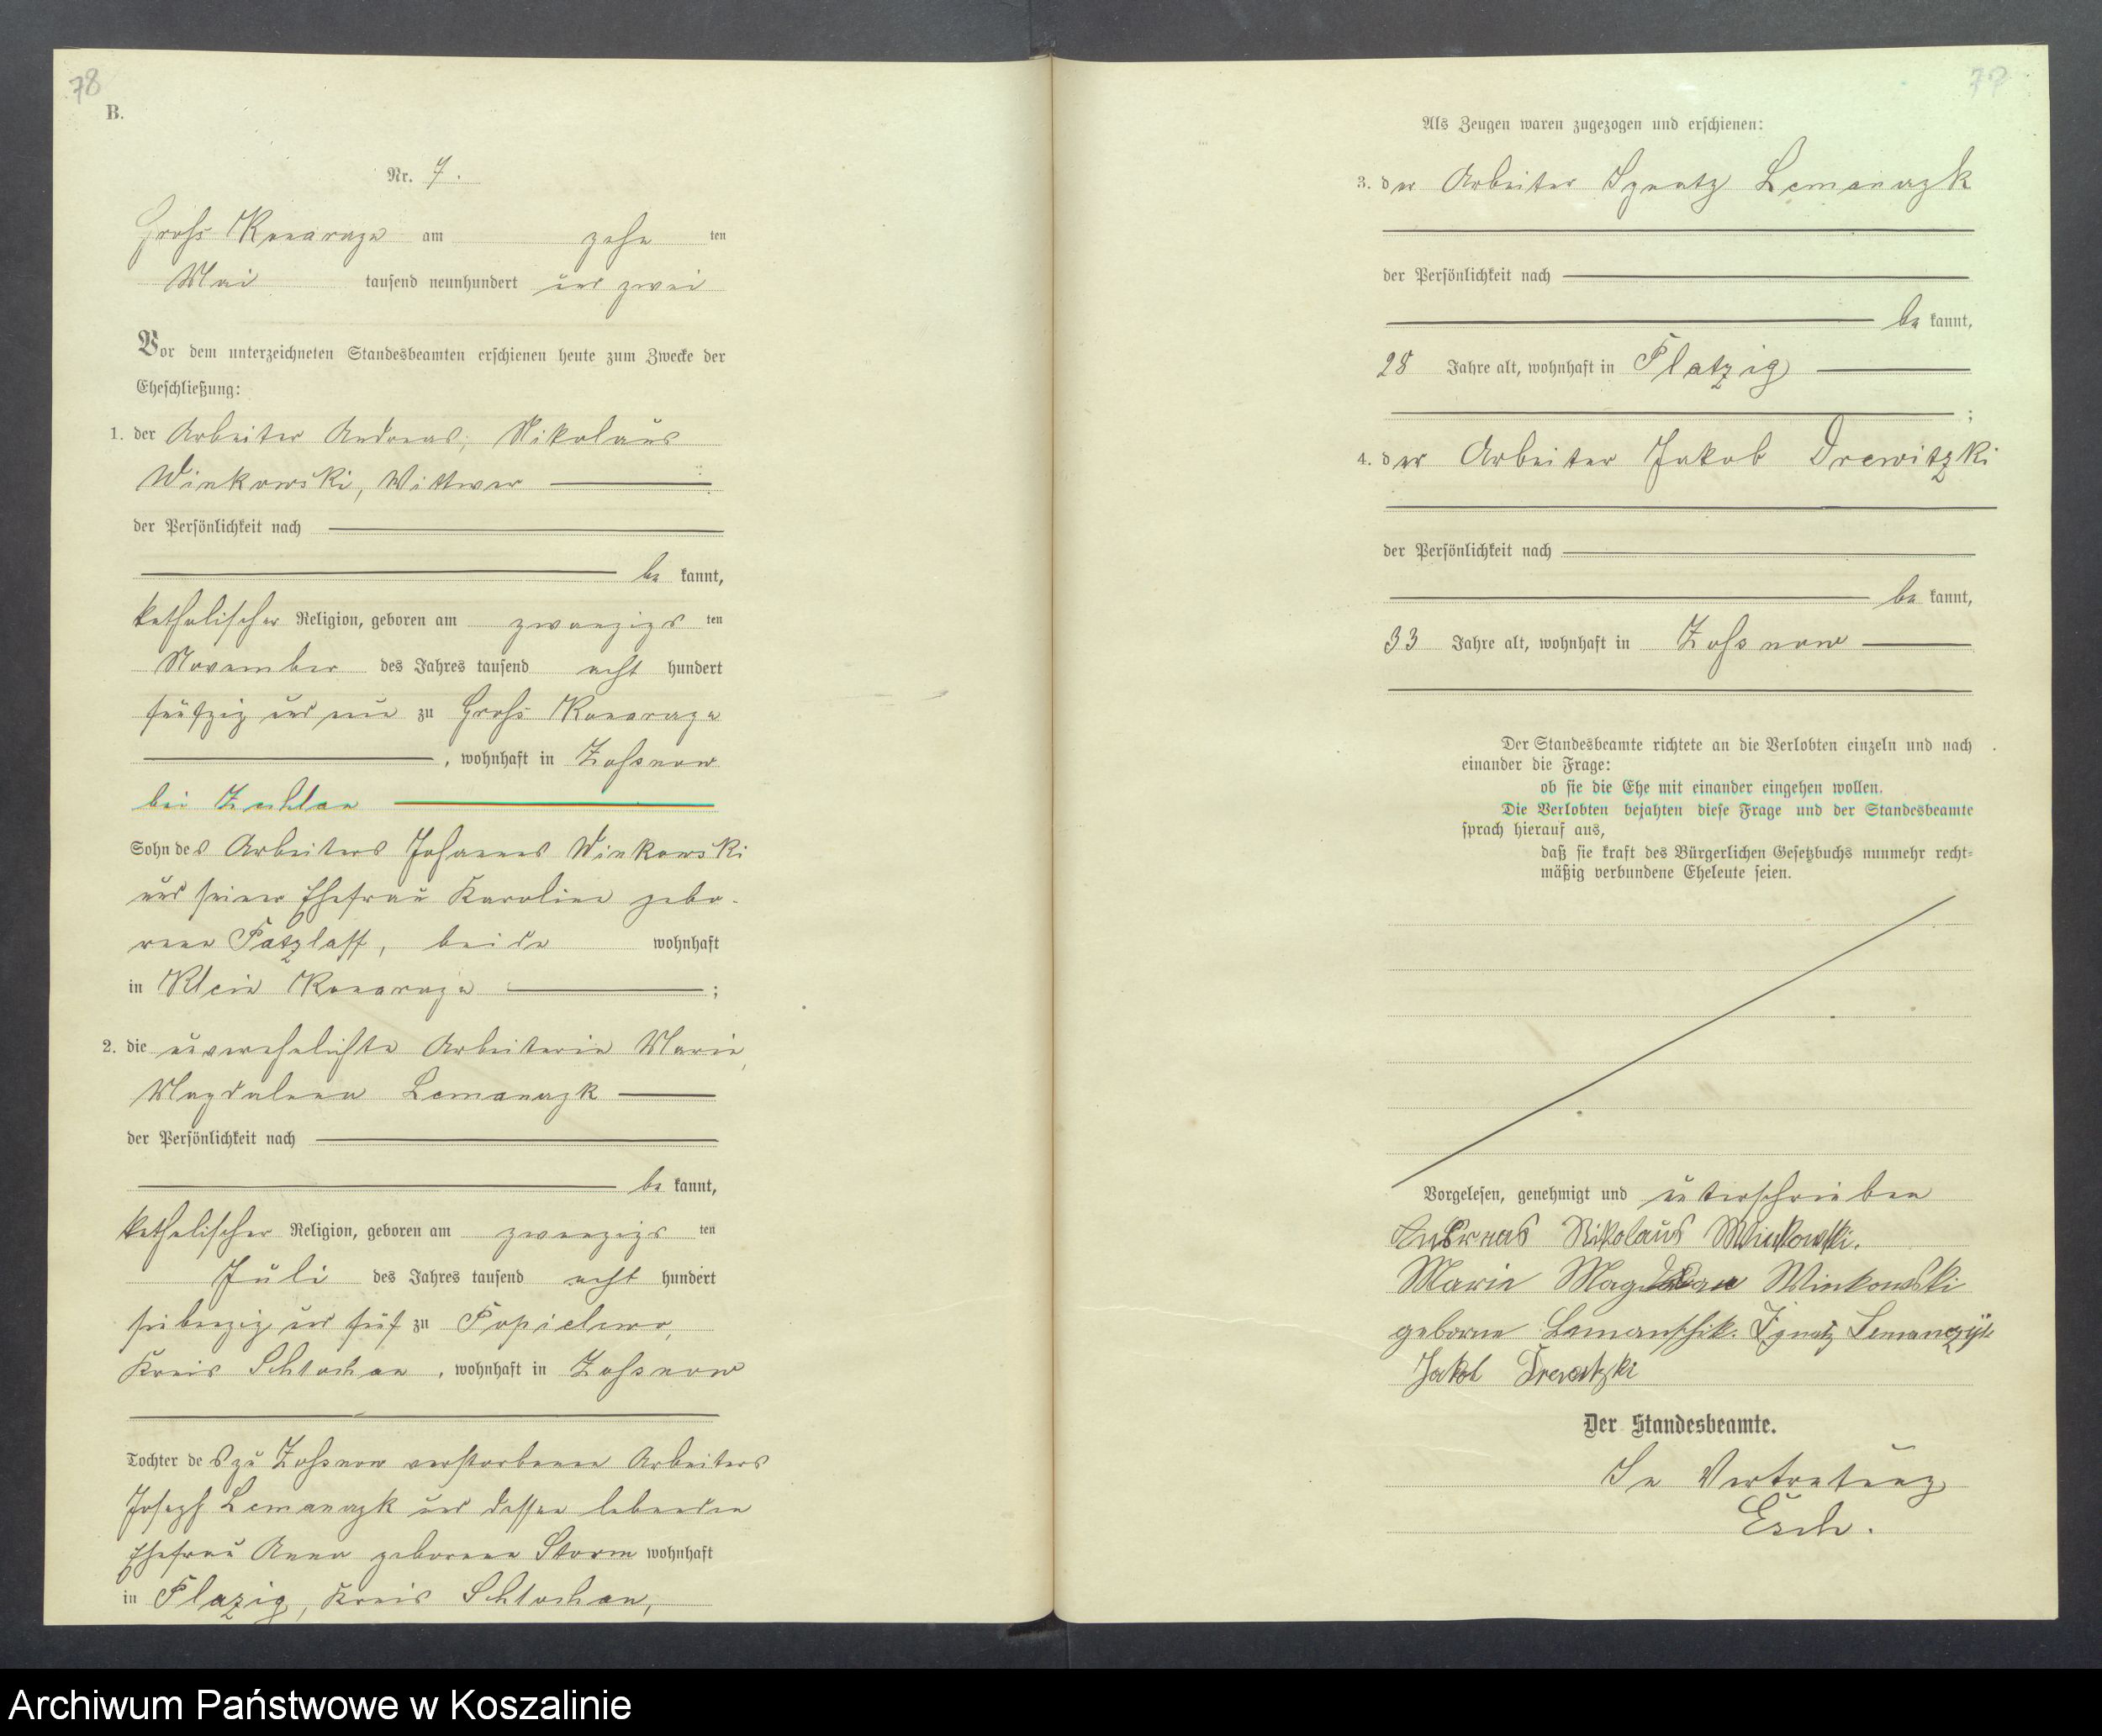 78
B.
Nr. 7.
Gross Konarzyn am zehn ten
Mai tausend neunhundert und zwei
Vor dem unterzeichneten Standesbeamten erschienen heute zum Zwecke der
Eheschließung:
1. der Arbeiter Andreas, Nikolaus
Winkowski, Wittwer
der Persönlichkeit nach
be kannt,
katholischer Religion, geboren am zwanzigs ten
November des Jahres tausend acht hundert
fünfzig und neun zu Gross
, wohnhaft in Zossnow
bei
Sohn des Arbeiters Johannes Winkowski
und seiner Ehefrau Karoline gebo-
renen Patzlaff, beide wohnhaft
in Klein ;
2. die unverehelichte Arbeiterin Marie,
Magdalena Lemanczk
der Persönlichkeit nach
be kannt,
katholischer Religion, geboren am zwanzigs ten
Juli des Jahres tausend acht hundert
siebenzig und fünf zu
Kreis Schlochau, wohnhaft in Zossnow
Tochter des zu Zossnow verstorbenen Arbeiters
Joseph Lemanczk und dessen lebenden
Ehefrau Anna geborenen Storm wohnhaft
in Plazig, Kreis Schlochau,
Als Zeugen waren zugezogen und erschienen:
3. der Arbeiter Ignatz Lemanczk
der Persönlichkeit nach
be kannt,
28 Jahre alt, wohnhaft in Platzig
;
4. der Arbeiter Jakob Drewitzki
der Persönlichkeit nach
be kannt,
33 Jahre alt, wohnhaft in Zossnow
Der Standesbeamte richtete an die Verlobten einzeln und nach
einander die Frage:
ob sie die Ehe mit einander eingehen wollen.
Die Verlobten bejahten diese Frage und der Standesbeamte
sprach hierauf aus,
daß sie kraft des Bürgerlichen Gesetzbuchs nunmehr recht-
mäßig verbundene Eheleute seien.
Vorgelesen, genehmigt und unterschrieben
Andreas Nikolaus Winkowski.
Marie Winkowski
geborne Lemanschik. Ignatz Lemanczyk
Jakob
Der Standesbeamte.
In Vertretung
Esch.
Archiwum Państwowe w Koszalinie